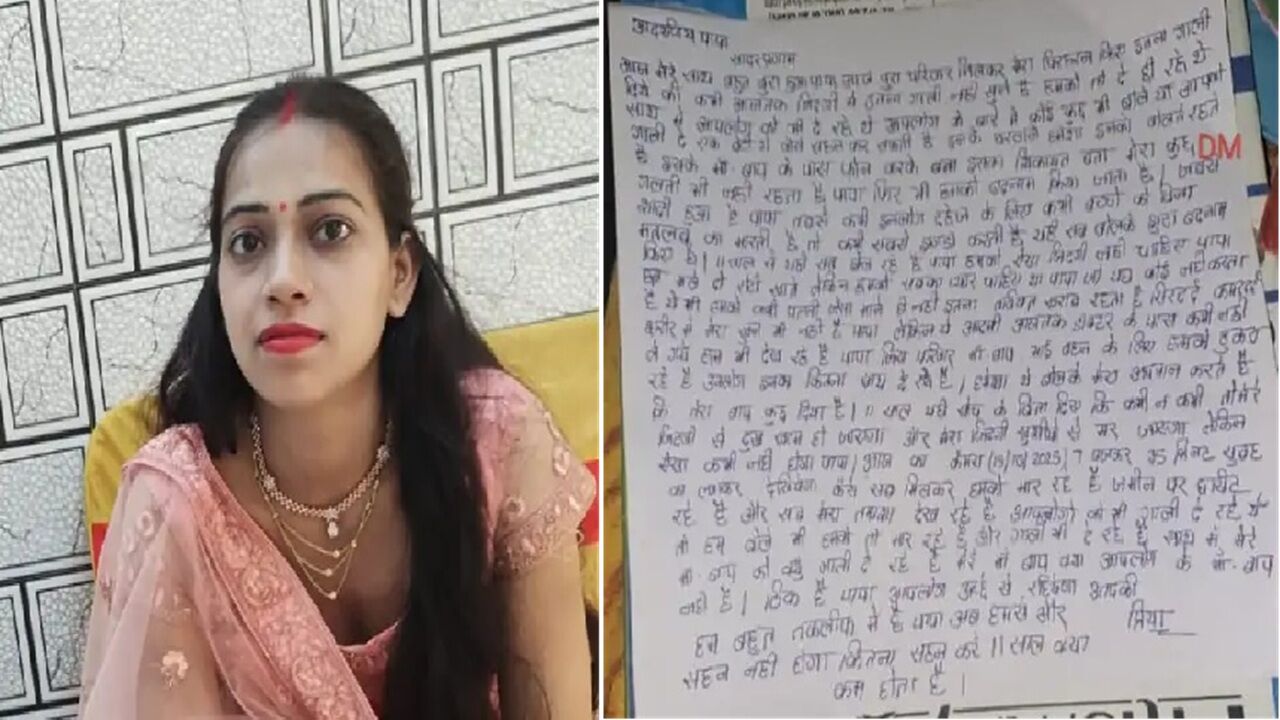 आदरणीय पापा
सादर प्रणाम
आज मेरे साथ बहुत बुरा हुआ पापा आज पूरा परिवार मिलकर मेरा किए इतना गाली
दिये की कभी आजतक जिंदगी में इतना गाली नहीं सुने है हमको तो दे ही रहे थे
साथ में आपलोग को भी दे रहे थे आपलोग के बारे में कोई कुछ भी बोले या आपको
गाली दे एक बेटी कैसे सहन कर सकती है इनके घरवाले हमेशा इनको बोलते रहते
DM
है इसके माँ-बाप के पास फोन करके बता इसका शिकायत बता मेरा कुछ
गलती भी नहीं रहता है पापा फिर भी हमको बदनाम किया जाता है। जबसे
शादी हुआ है पापा तबसे कभी इनलोग दहेज के लिए कभी बच्चों को बिना
मतलब का मारती है तो कभी सबसे झगड़ा करती है यही सब बोलके झूठा बदनाम
किए है। 11 साल से यही सब झेल रहे है पापा हमको ऐसी जिंदगी नहीं चाहिए पापा
हम भले दो रोटी खाते लेकिन हमको सबका प्यार चाहिए था पापा जो यहाँ कोई नहीं करता
है ये भी हमको कभी पत्नी जैसा माने ही नहीं इतना तबियत खराब रहता है सिरदर्द कमरदर्द
शरीर में मेरा खून भी नहीं है पापा लेकिन ये आदमी आजतक डॉक्टर के पास कभी नहीं
ले गये हम भी देख रहे है पापा जिस परिवार माँ बाप भाई बहन के लिए हमको ठुकरा
रहे है उनलोग इनका कितना साथ दे रहे है। हमेशा ये बोलके मेरा अपमान करते है
कि तेरा बाप कुछ दिया है। 11 साल यही सोच के बिता दिए कि कभी न कभी तो मेरे
जिंदगी से दुख खत्म हो जाएगा और मेरा जिंदगी खुशियों से भर जाएगा लेकिन
ऐसा कभी नहीं होगा पापा। आज का कैमरा 2025) 7 बजकर 35 मिनट सुबह
का लगाकर देखियेगा कैसे सब मिलकर हमको मार रहे है जमीन पर घसीट
रहे है और सब मेरा तमाशा देख रहे है आपलोगो को भी गाली दे रहे थे
तो हम बोले भी हमको तो मार रहे है और गाली भी दे रहे है साथ में मेरे
माँ-बाप को क्यु गाली दे रहे है मेरे माँ बाप क्या आपलोग के माँ-बाप
नहीं है। ठिक है पापा आपलोग अच्छे से रहियेगा आपकी
हम बहुत तकलीफ में है पापा अब हमसे और प्रिया
सहन नहीं होगा कितना सहन करे 11 साल क्या
कम होता है।